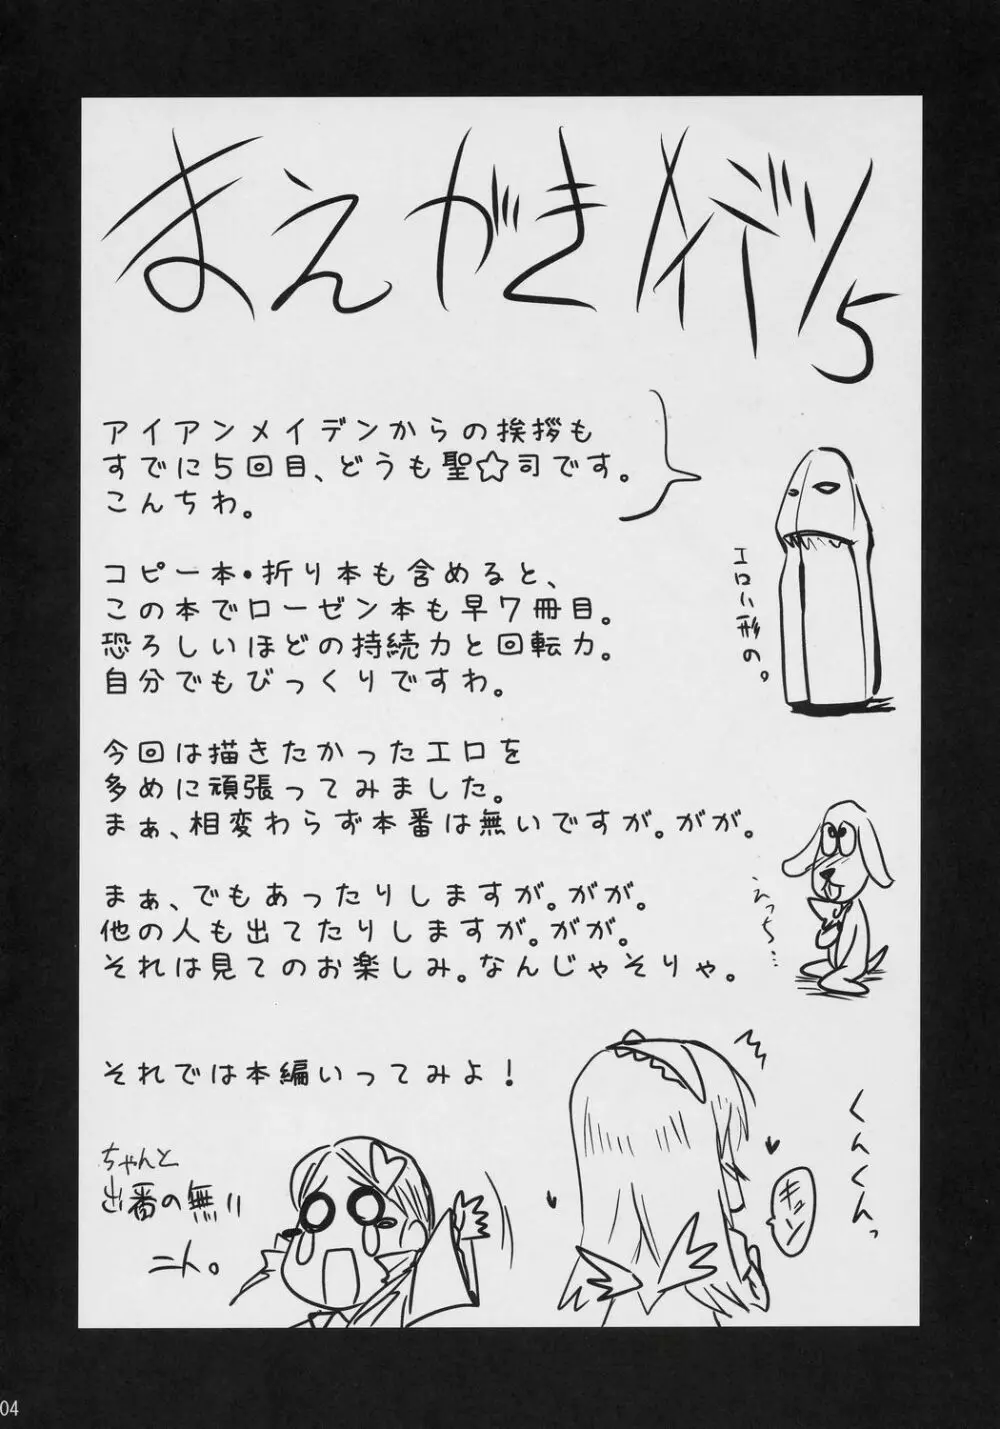 まえがきメイデン5
アイアンメイデンからの挨拶も
すでに5回目、どうも聖☆司です。
こんちわ。
エロい形の。
コピー本・折り本も含めると、
この本でローゼン本も早7冊目。
恐ろしいほどの持続力と回転力。
自分でもびっくりですわ。
今回は描きたかったエロを
多めに頑張ってみました。
まぁ、相変わらず本番は無いですが。がが。
えっち…
まぁ、でもあったりしますが。がが。
他の人も出てたりしますが。がが。
それは見てのお楽しみ。なんじゃそりゃ。
それでは本編いってみよ!
くんくんっ
キュン
ちゃんと
出番の無い
ニト。
04